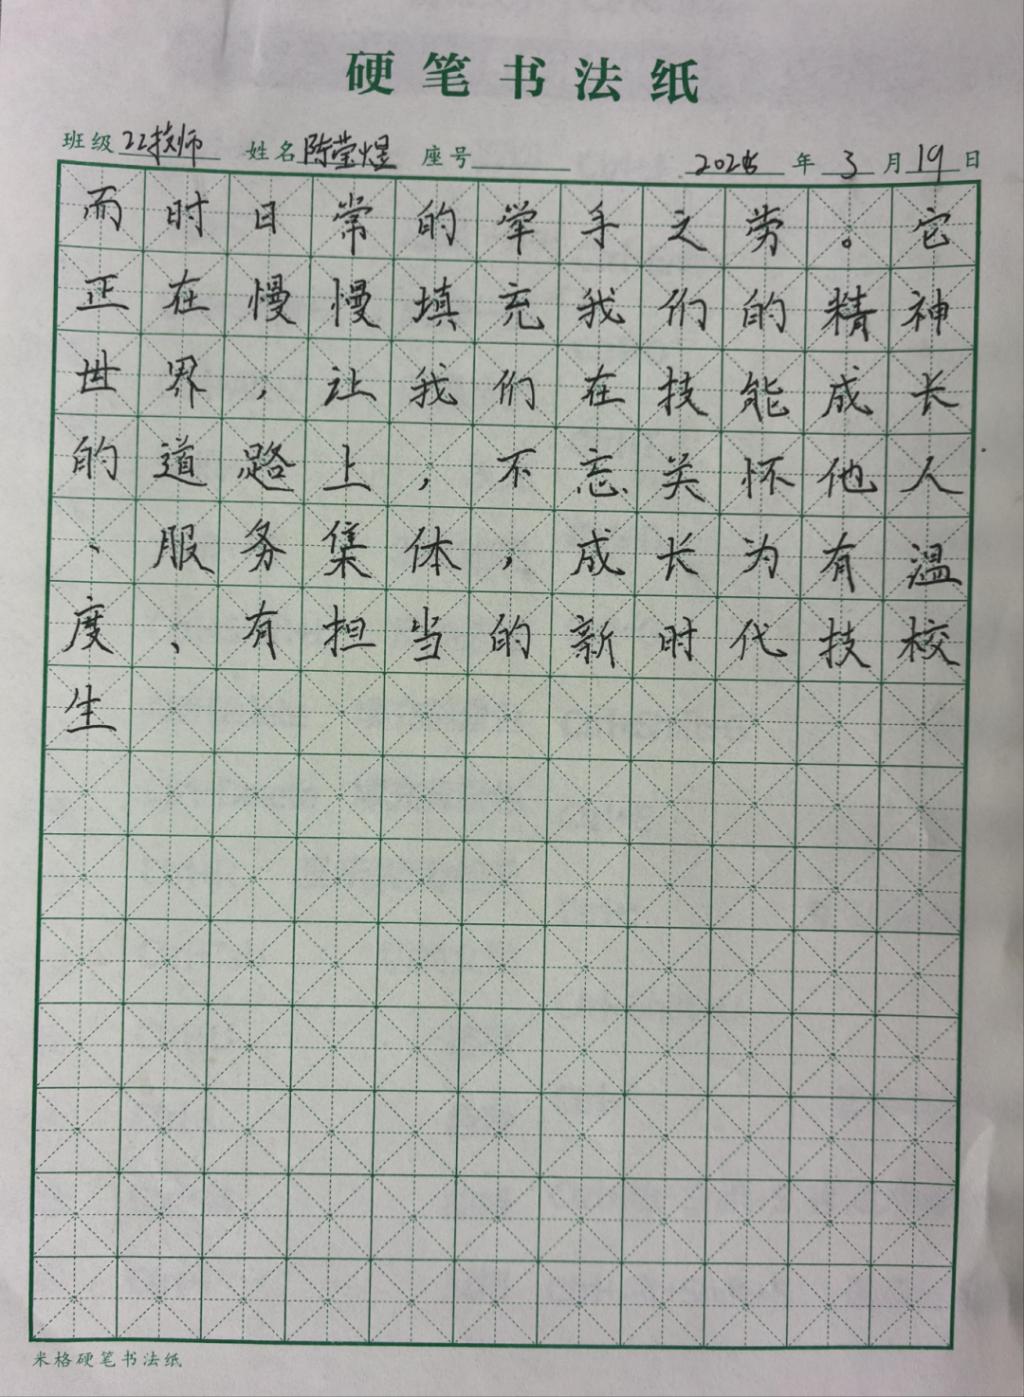 硬笔书法纸
班级 22技师 姓名 陈莹煜 座号 年 3 月 19 日
而时日常的举手之劳。它
正在慢慢填充我们的精神
世界，让我们在技能成长
的道路上，不忘关怀他人
、服务集体，成长为有温
度、有担当的新时代技校
生
米格硬笔书法纸